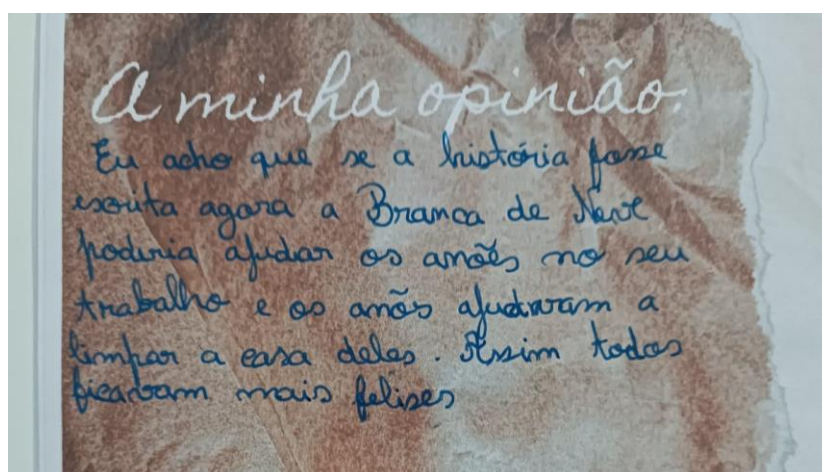 A minha opinião:
Eu acho que se a história fosse
escrita agora a Branca de Neve
poderia ajudar os anões no seu
trabalho e os anõs ajudavam a
limpar a casa deles. Assim todos
ficavam mais felises